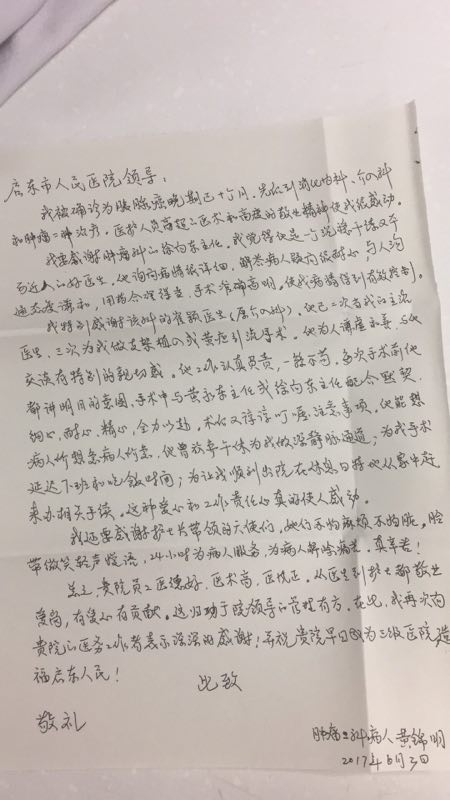 启东市人民医院领导:
我被确诊为胰腺癌晚期已十个月。先后到消化内科、介入科
和肿瘤二科治疗。医护人员高超的医术和高度的敬业精神使我很感动。
我要感谢肿瘤科的徐向东主任。我觉得他是个说话干练又平
易近人的好医生。他询问病情很详细,解答病人疑问很耐心,与人沟
通态度谦和,用药合理得当,手术准确高明,使我病情得到有效控制。
我特别感谢该科的崔颖医生(原介入科)。他已二次当我的主流
医生,三次为我做支架植入或黄疸引流手术。他为人谦虚和善,与他
交谈有特别的亲切感。他工作认真负责,一丝不苟,每次手术前他
都讲明目的意图,手术中与黄永东主任或徐向东主任配合默契,
细心,耐心,精心,全力以赴,术后又谆谆叮嘱注意事项。他能想
病人所想急病人所急,他曾放弃午休为我做深静脉通道;为我手术
延迟下班和吃饭时间;为让我顺利出院在休息日特地从家中赶
来办相关手续。这种爱心和工作责任心真的使人感动。
我还要感谢护士长带领的天使们,她们不怕麻烦不怕脏,脸
带微笑轻声慢语,24小时为病人服务,为病人解除痛苦。真辛苦!
总之,贵院员工医德好,医术高,医风正。从医生到护士都敬业
爱岗,有爱心有贡献。这归功于院领导的管理有方。在此,我再次向
贵院的医务工作者表示深深的感谢!并祝贵院早日成为三级医院造
福启东人民!
此致
敬礼
肿瘤二科病人黄锦明
2017年6月3日